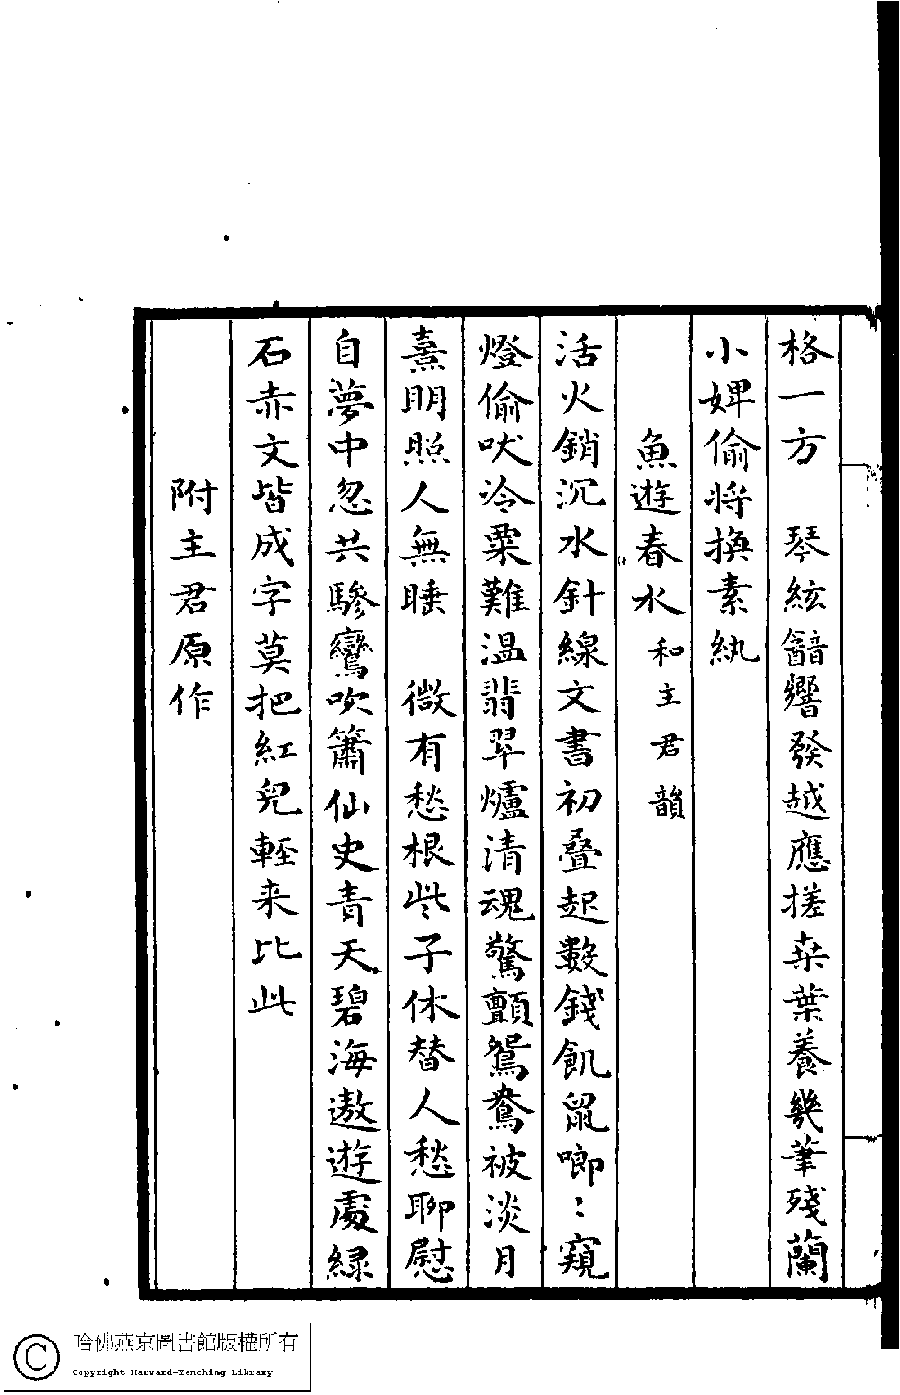 格一方　琴絃黯響發越應搓桒葉養幾筆殘蘭
小婢偷將換素紈
魚遊春水和主君韻
活火銷沉水針線文書初疊起數錢飢鼠唧〻窺
燈偷吠冷粟難温翡翠爐清魂驚顫鴛鴦被淡月
熹明照人無睡　微有愁根些子休替人愁聊慰
自夢中忽共驂鸞吹簫仙史青天碧海遨遊處緑
石赤文皆成字莫把紅兒輕来比此
附主君原作
哈佛燕京圖書館版權所有
Copyright Harvard-Yenching Library